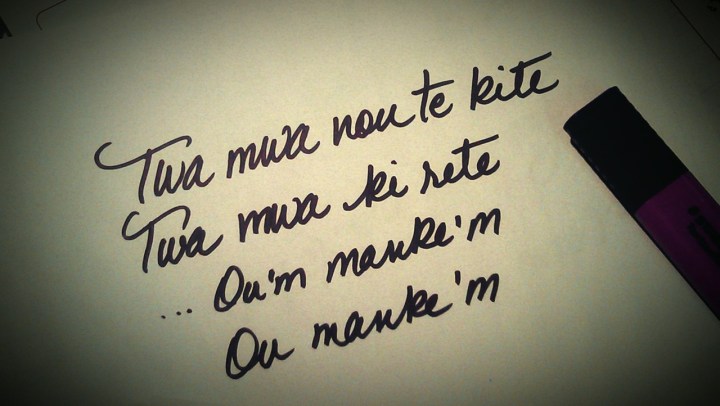 Twa mwa nou te kite
Twa mwa ki rete
... Ou'm manke'm
Ou manke'm